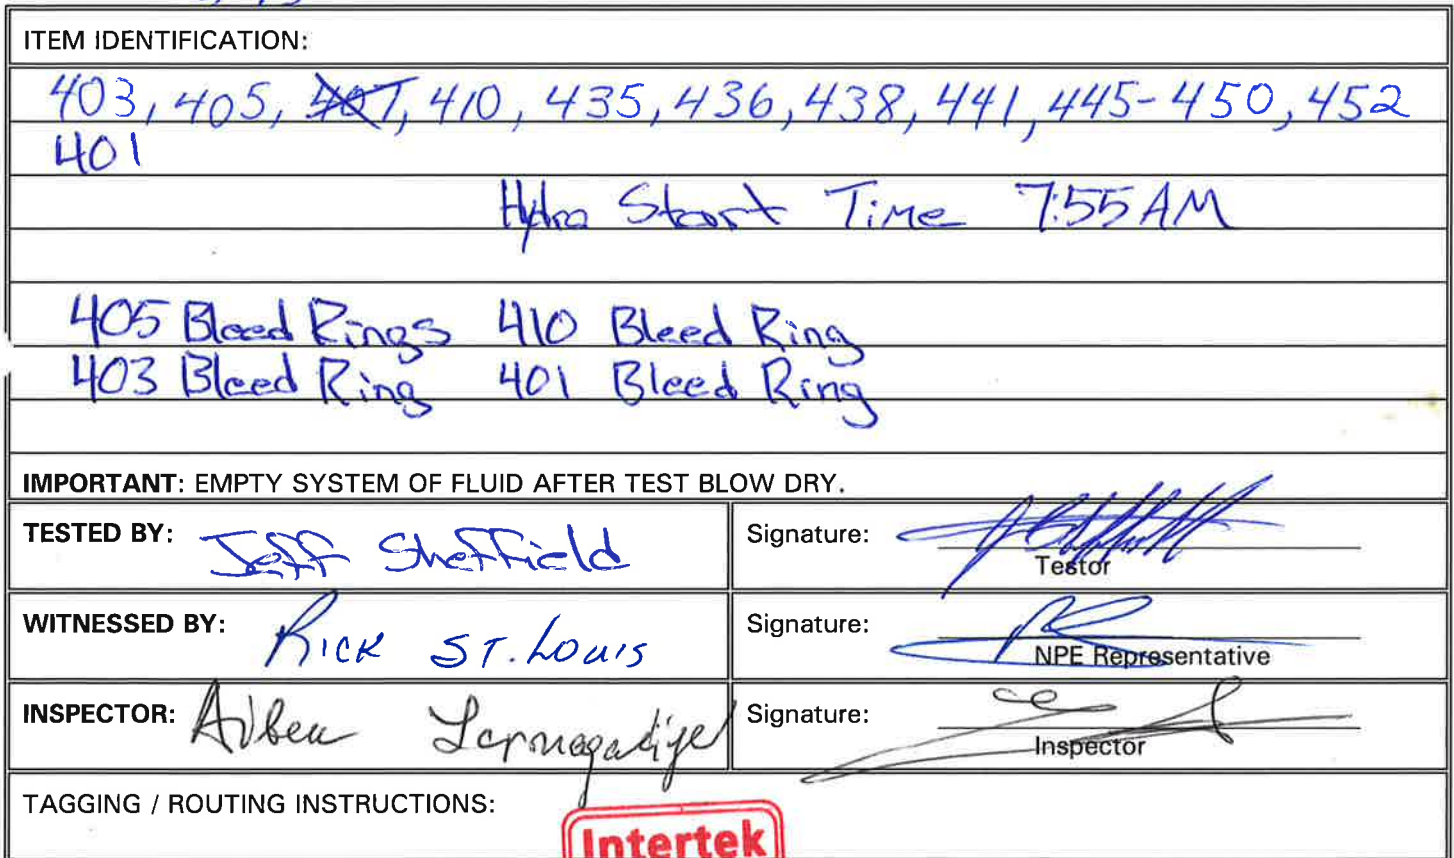 ITEM IDENTIFICATION:
403, 405, 407, 410, 435, 436, 438, 441, 445-450, 452
401
Hydro Start Time 7:55 AM
405 Bleed Rings 410 Bleed Ring
403 Bleed Ring 401 Bleed Ring
IMPORTANT: EMPTY SYSTEM OF FLUID AFTER TEST BLOW DRY.
TESTED BY: Jeff Sheffield Signature:
Testor
WITNESSED BY: RICK ST. LOUIS Signature:
NPE Representative
INSPECTOR: Signature:
Inspector
TAGGING / ROUTING INSTRUCTIONS:
Intertek